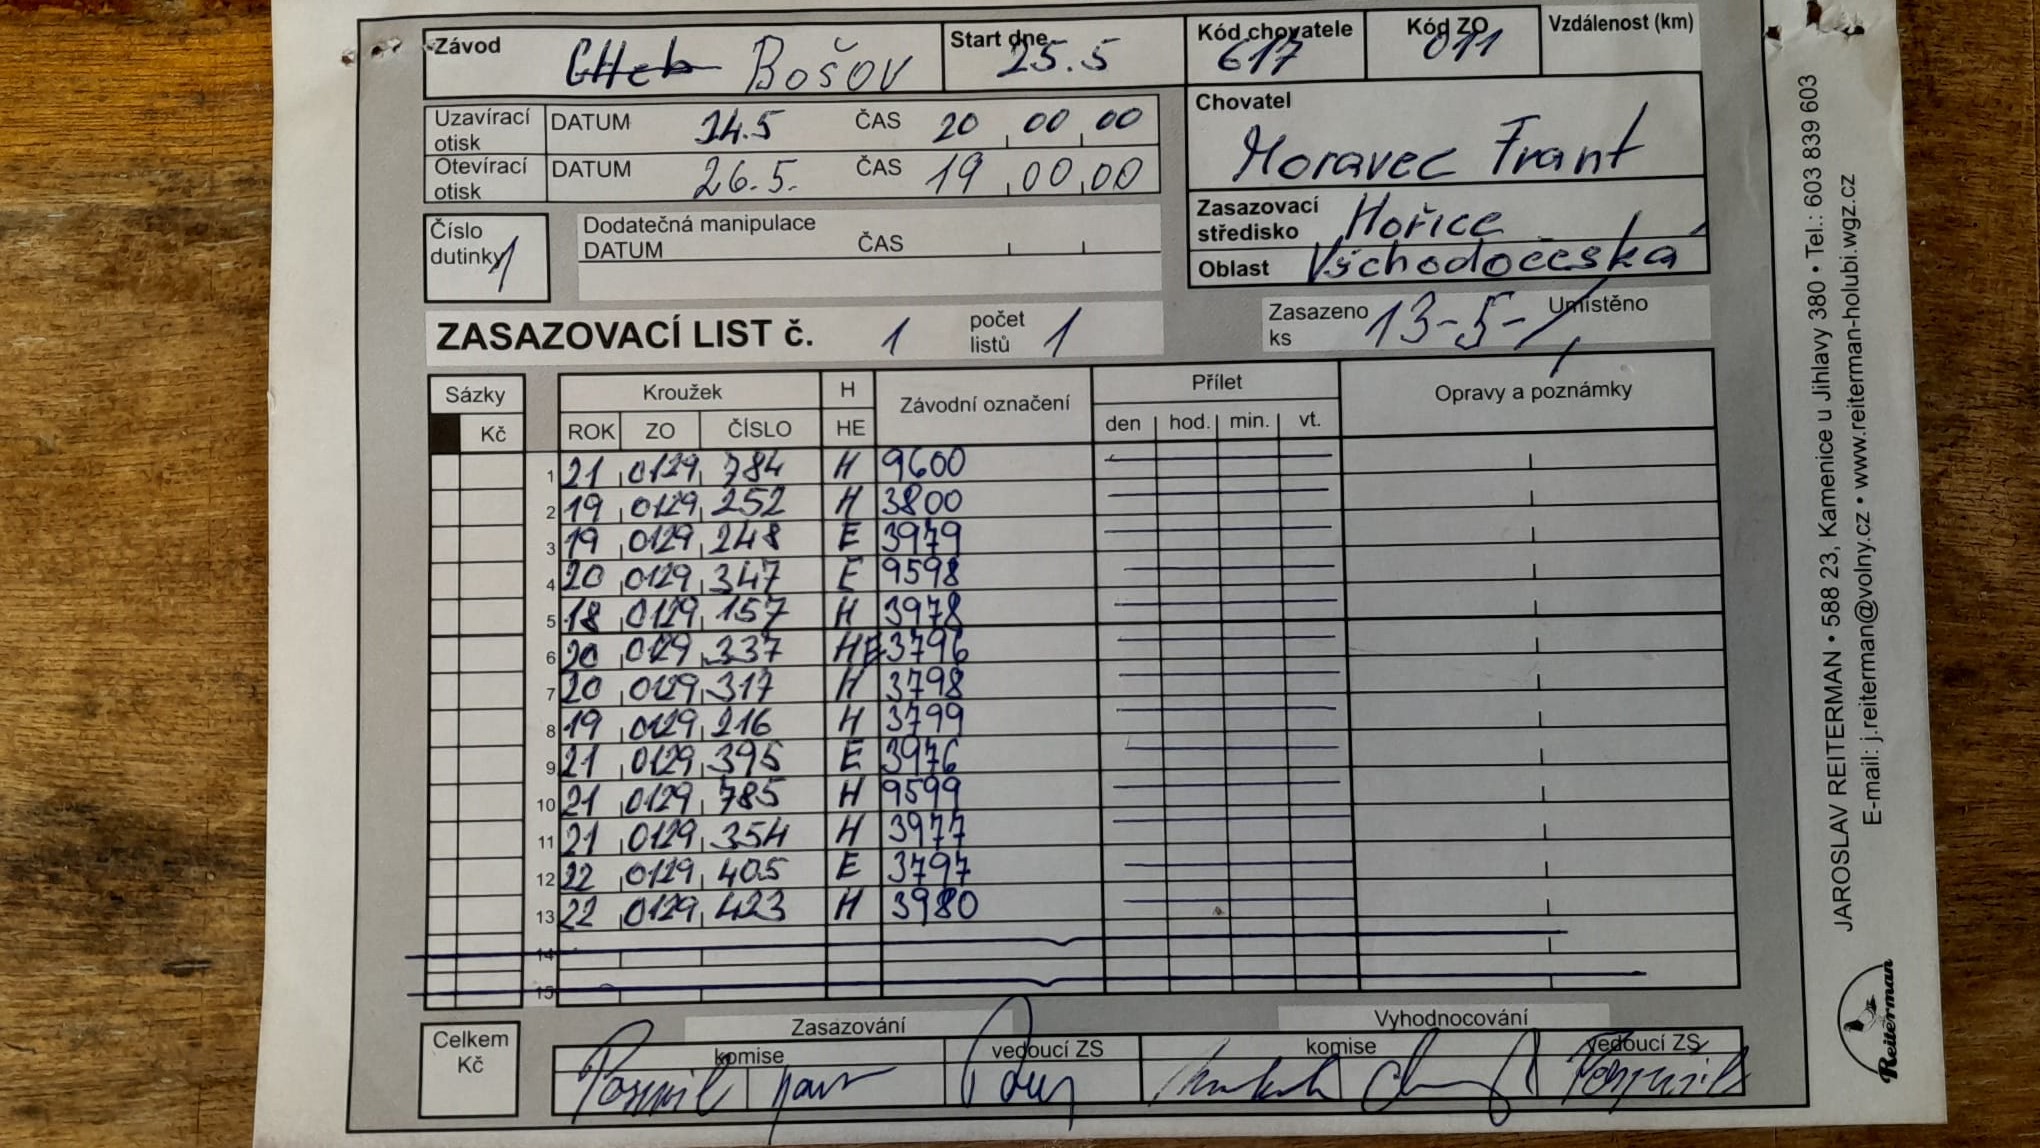 Závod Cheb BOŠOV Start dne 25.5 Kód chovatele 617 Kód ZO 011 Vzdálenost (km)
Uzavírací otisk DATUM 24.5 ČAS 20 00 00
Otevírací otisk DATUM 26.5. ČAS 19 00 00
Chovatel
Moravec Frant
Číslo dutinky 1
Dodatečná manipulace
DATUM ČAS
Zasazovací středisko Hořice
Oblast Východočeská
ZASAZOVACÍ LIST č. 1 počet listů 1
Zasazeno ks 13-5-1 Umístěno
Sázky Kroužek H Závodní označení Přílet Opravy a poznámky
Kč ROK ZO ČÍSLO HE den hod. min. vt.
1 21 0129 784 H 9600
2 19 0129 252 H 3800
3 19 0129 248 E 3979
4 20 0129 347 E 9598
5 18 0129 157 H 3978
6 20 0129 337 HE 3796
7 20 0129 317 H 3798
8 19 0129 216 H 3799
9 21 0129 395 E 3976
10 21 0129 785 H 9599
11 21 0129 354 H 3977
12 22 0129 405 E 3797
13 22 0129 423 H 3980
14
15
Celkem Kč
Zasazování Vyhodnocování
komise vedoucí ZS komise vedoucí ZS
JAROSLAV REITERMAN • 588 23, Kamenice u Jihlavy 380 • Tel.: 603 839 603
E-mail: j.reiterman@volny.cz • www.reiterman-holubi.wgz.cz
Reiterman